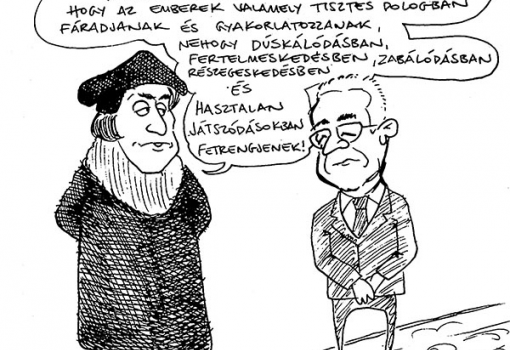 HOGY AZ EMBEREK VALAMELY TISZTES DOLOGBAN
FÁRADJANAK ÉS GYAKORLATOZZANAK,
NEHOGY DÚSKÁLÓDÁSBAN,
FERTELMESKEDÉSBEN, ZABÁLÓDÁSBAN
RÉSZEGESKEDÉSBEN
ÉS
HASZTALAN
JÁTSZÓDÁSOKBAN
FETRENGJENEK!